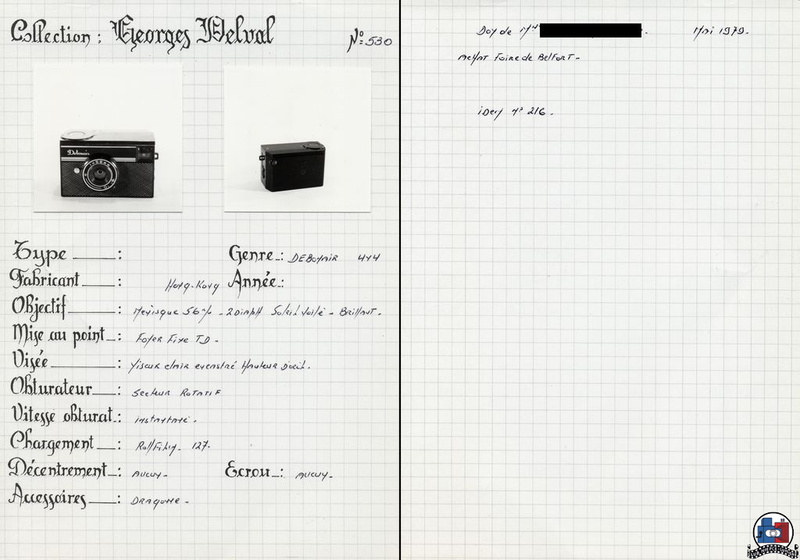 Collection : Georges Delval
N° 530
Type : Genre : DEBONAIR 4x4
Fabricant : Hong-Kong Année :
Objectif : Ménisque 56 m/m - 2 Diaph Soleil Voilé - Brillant.
Mise au point : Foyer Fixe TD -
Visée : Viseur clair excentré Hauteur Droit.
Obturateur : Secteur Rotatif
Vitesse obturat : instantané.
Chargement : RollFilm - 127.
Décentrement : AUCUN - Ecrou : AUCUN -
Accessoires : Dragonne -
Don de Mr Mai 1979.
Foire de Belfort -
idem n° 216 -